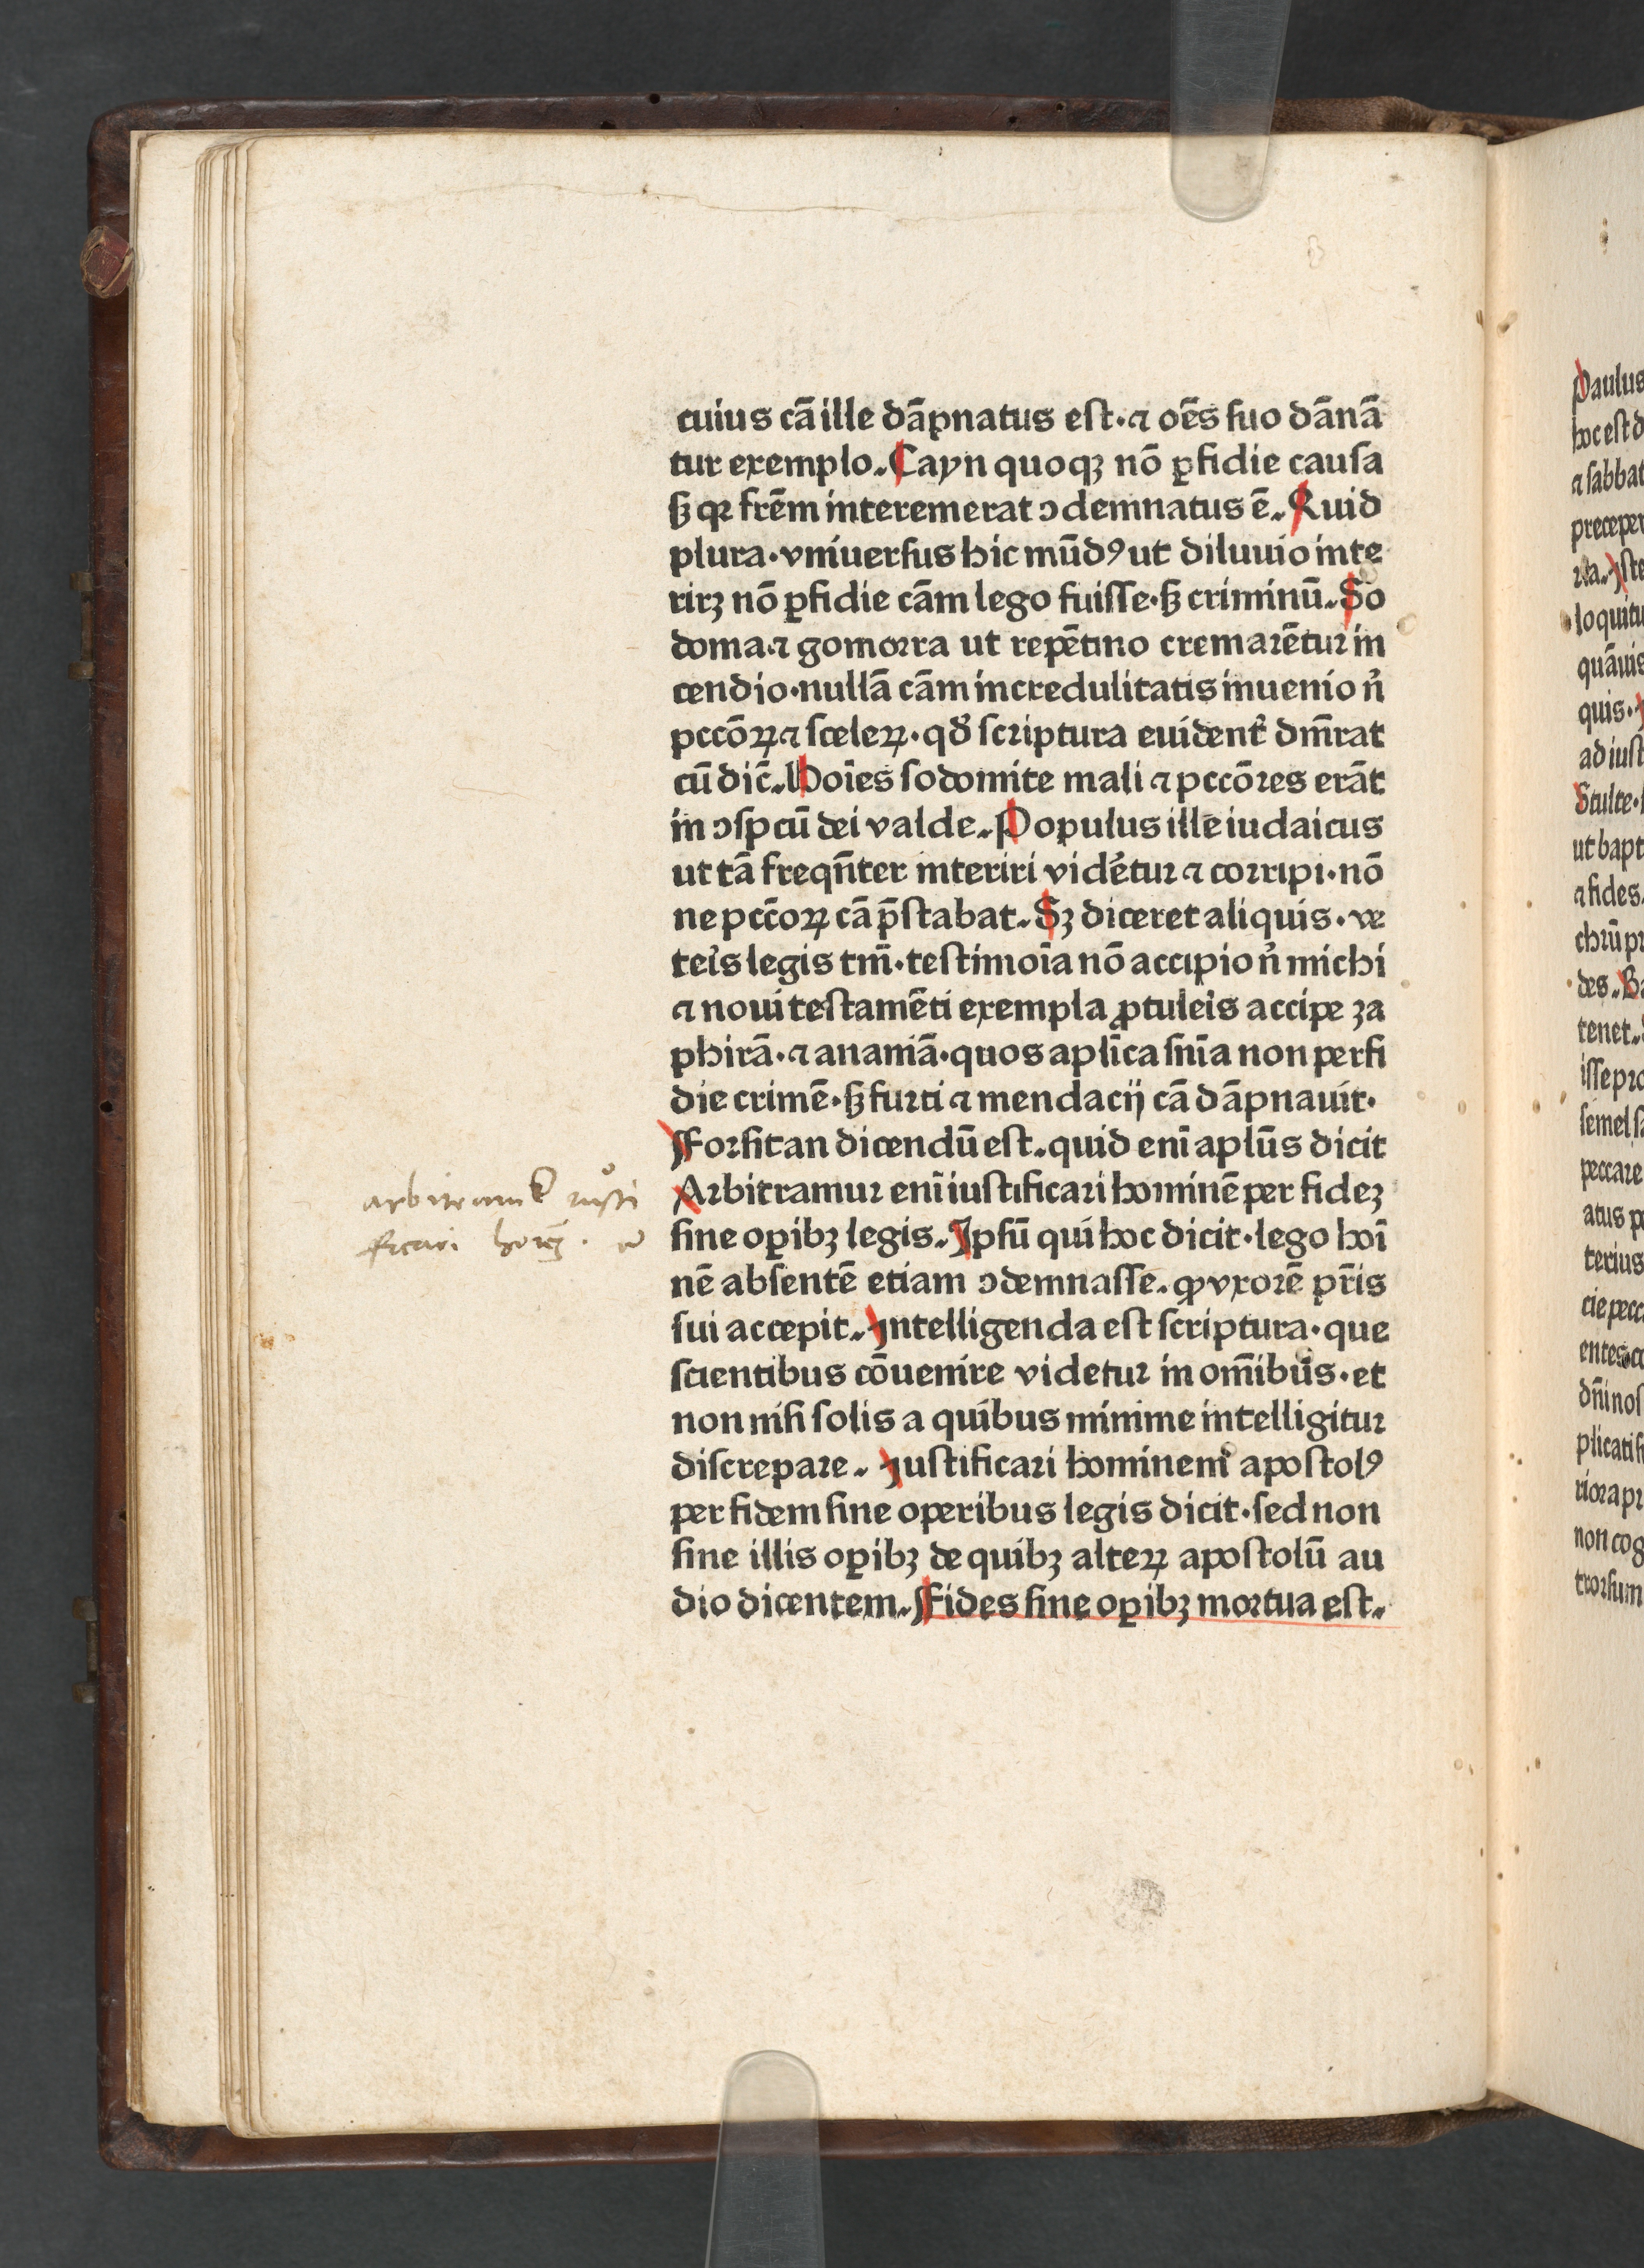 cuius cā ille dāpnatus eſt · ⁊ oēs ſuo dānā
tur exemplo. Cayn quoqꝫ nō ꝑfidie cauſa
ſꝫ qꝛ frēm interemerat ↄdemnatus ē. Quid
plura · vniuerſus hic mūdꝰ ut diluuio inte
rirꝫ nō ꝑfidie cām lego fuiſſe · ſꝫ criminū. So
doma · ⁊ gomorra ut repētino cremarētur in
cendio · nullā cām incredulitatis inuenio n̄
pccōꝝ ⁊ ſceleꝝ · qđ ſcriptura euidenť dm̄rat
cū dic̄. Hoīes ſodomite mali ⁊ pccōres erāt
in ↄſpcū dei valde. Populus ille iudaicus
ut tā freqn̄ter interiri vidētur ⁊ corripi · nō
ne pcc̄oꝝ cā p̄ſtabat. Sꝫ diceret aliquis · ve
teīs legis tm̄ · teſtimoīa nō accipio n̄ michi
⁊ noui teſtamēti exempla ꝓtuleīs accipe za
phirā · ⁊ ananiā · quos apl̄ica ſnīa non perfi
die crimē · ſꝫ furti ⁊ mendacij cā dāpnauit ·
Forſitan dicendū eſt. quid enī apl̄us dicit
Arbitramur enī iuſtificari hominē per fideꝫ
ſine oꝑibꝫ legis. Ipſū qui hoc dicit · lego hoī
nē abſentē etiam ↄdemnaſſe. ꝙ vxorē pr̄is
ſui accepit. Intelligenda eſt ſcriptura · que
ſcientibus cōuenire videtur in om̄ibus · et
non niſi ſolis a quibus minime intelligitur
diſcrepare. Iuſtificari hominem apoſtolꝰ
per fidem ſine operibus legis dicit · ſed non
ſine illis oꝑibꝫ de quibꝫ alteꝝ apoſtolū au
dio dicentem. Fides ſine oꝑibꝫ mortua eſt.
ficari
Paulus
hoc eſt d
⁊ ſabbat
preceper
loquitu
quāuis
quis ·
ad iuſt
Stulte ·
ut bapt
⁊ fides
tenet.
iſſe pro
ſemel ſ
peccare
atus p
terius
cie pecc
dn̄i noſ
plicati
non cog
trorſum